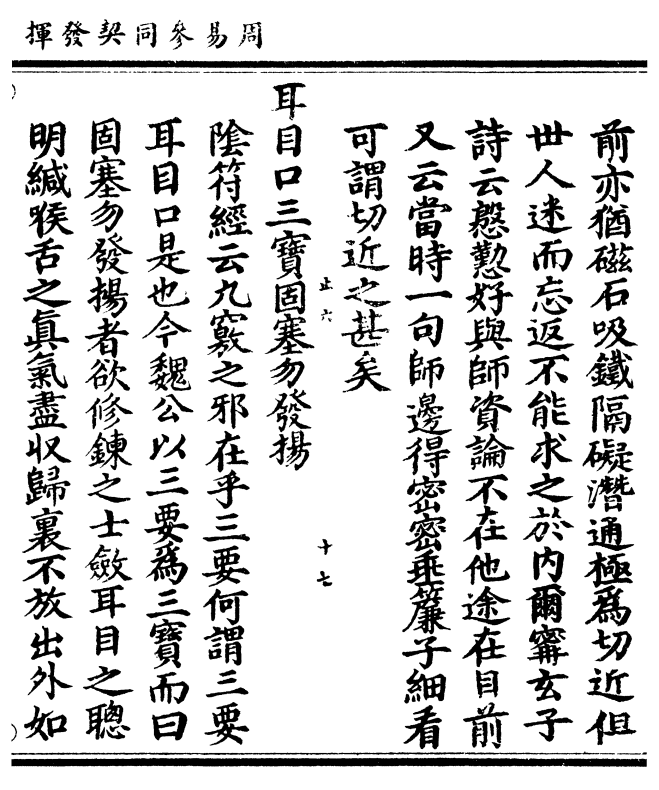 周易參同契發揮
前亦猶磁石吸鐵隔礙潛通極爲切近但
世人迷而忘返不能求之於内爾甯玄子
詩云慇懃好與師資論不在他途在目前
又云當時一句師邊得密密垂簾子細看
可謂切近之甚矣
止六
十七
耳目口三寶固塞勿發揚
陰符經云九竅之邪在乎三要何謂三要
耳目口是也今魏公以三要爲三寶而曰
固塞勿發揚者欲修鍊之士斂耳目之聰
明緘喉舌之眞氣盡収歸裏不放出外如